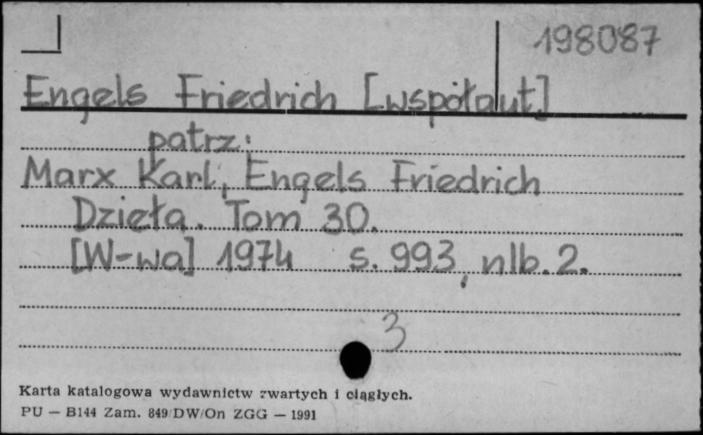 198087
Engels Friedrich [współaut]
patrz:
Marx Karl, Engels Friedrich
Dzieła. Tom 30.
[W-wa] 1974 s. 993, nlb. 2.
3
Karta katalogowa wydawnictw zwartych i ciągłych.
PU — B144 Zam. 849/DW/On ZGG — 1991